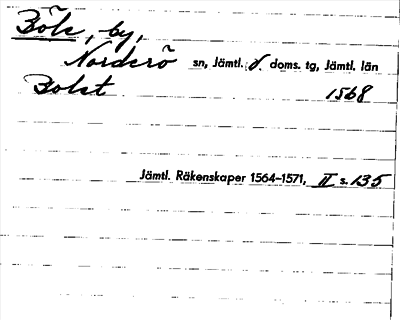 Böle, by,
Norderö sn, Jämtl. v. doms. tg, Jämtl. län
Bolet 1568
Jämtl. Räkenskaper 1564-1571, II s. 135